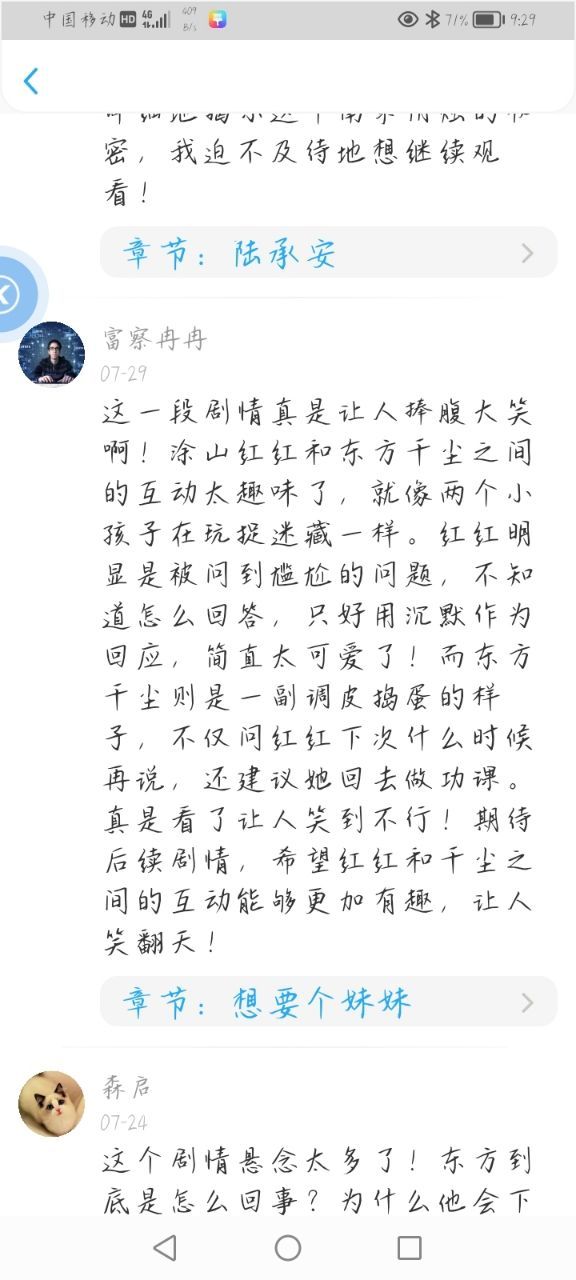 中国移动 HD 4G 409 B/s 71% 9:29
密，我迫不及待地想继续观
看！
章节：陆承安
富察冉冉
07-29
这一段剧情真是让人捧腹大笑
啊！涂山红红和东方千尘之间
的互动太趣味了，就像两个小
孩子在玩捉迷藏一样。红红明
显是被问到尴尬的问题，不知
道怎么回答，只好用沉默作为
回应，简直太可爱了！而东方
千尘则是一副调皮捣蛋的样
子，不仅问红红下次什么时候
再说，还建议她回去做功课。
真是看了让人笑到不行！期待
后续剧情，希望红红和千尘之
间的互动能够更加有趣，让人
笑翻天！
章节：想要个妹妹
森启
07-24
这个剧情悬念太多了！东方到
底是怎么回事？为什么他会下